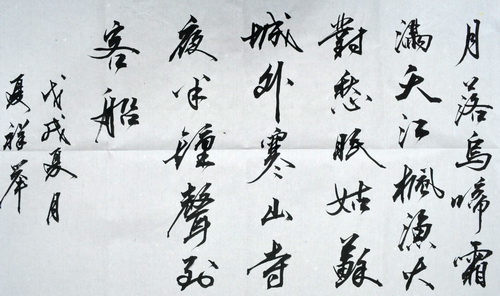 月落烏啼霜
滿天江楓漁火
對愁眠姑蘇
城外寒山寺
夜半鐘聲到
客船
戊戌夏月
夏祥舉